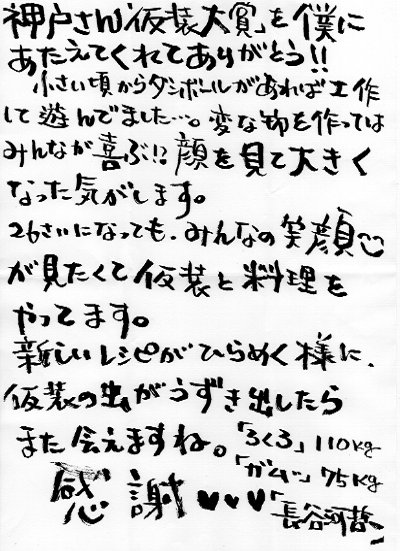 神戸さん「仮装大賞」を僕に
あたえてくれてありがとう!!
小さい頃からダンボールがあれば工作
して遊んでました…。変な物を作っては
みんなが喜ぶ!?顔を見て大きく
なった気がします。
26さいになっても、みんなの笑顔
が見たくて仮装と料理を
やってます。
新しいレシピがひらめく様に、
仮装の虫がうずき出したら
また会えますね。「ろくろ」110kg
「ガム」75kg
感謝♥♥♥「長谷河哲